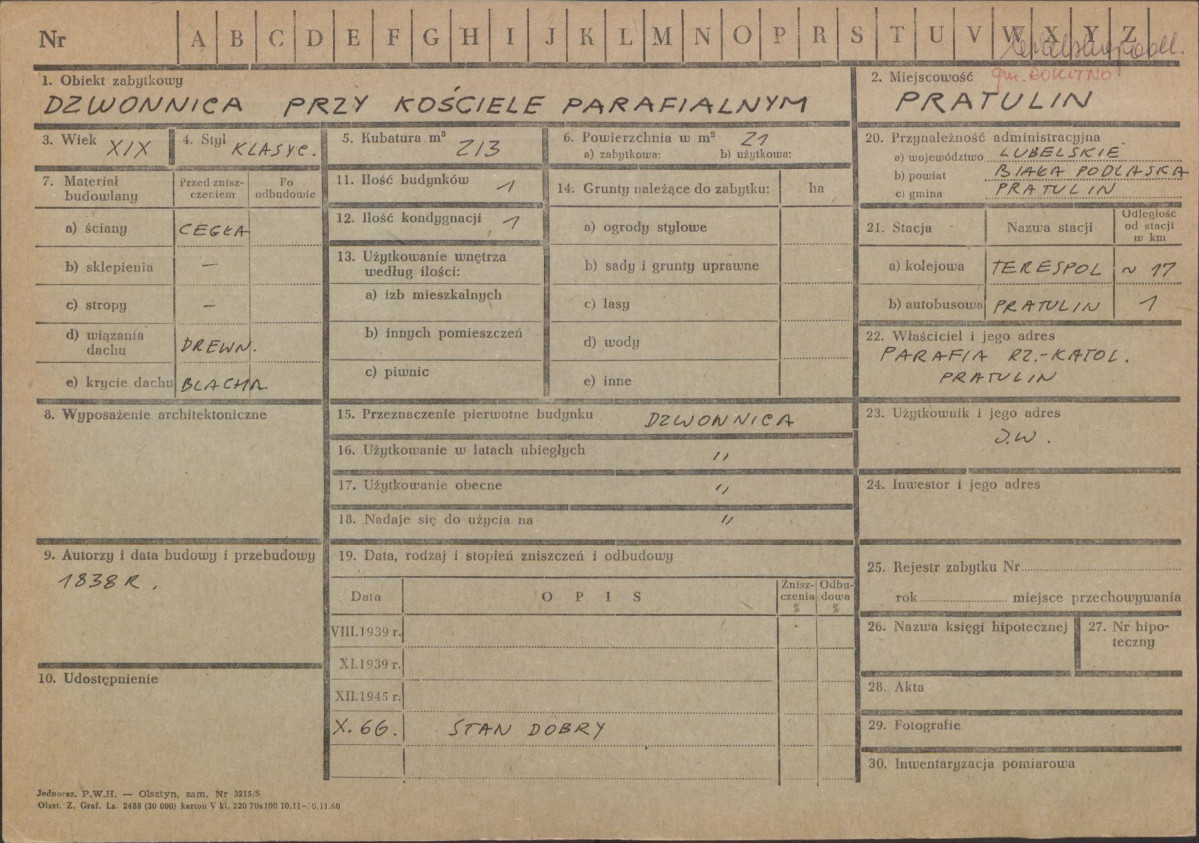 Nr A B C D E F G H I J K L M N O P R S T U V W X Y Z
gm. ROKITNO
1. Obiekt zabytkowy
DZWONNICA PRZY KOŚCIELE PARAFIALNYM
2. Miejscowość
PRATULIN
3. Wiek XIX
4. Styl KLASYC.
5. Kubatura m³ 213
6. Powierzchnia w m² 21
a) zabytkowa: b) użytkowa:
7. Materiał budowlany
Przed znisz-
czeniem
Po
odbudowie
a) ściany CEGŁA
b) sklepienia —
c) stropy —
d) wiązania
dachu DREWN.
e) krycie dachu BLACHA
8. Wyposażenie architektoniczne
9. Autorzy i data budowy i przebudowy
1838 R.
10. Udostępnienie
11. Ilość budynków 1
12. Ilość kondygnacji 1
13. Użytkowanie wnętrza
według ilości:
a) izb mieszkalnych
b) innych pomieszczeń
c) piwnic
14. Grunty należące do zabytku: ha
a) ogrody stylowe
b) sady i grunty uprawne
c) lasy
d) wody
e) inne
15. Przeznaczenie pierwotne budynku DZWONNICA
16. Użytkowanie w latach ubiegłych "
17. Użytkowanie obecne "
18. Nadaje się do użycia na "
19. Data, rodzaj i stopień zniszczeń i odbudowy
Data OPIS
Znisz-
czenia
%
Odbu-
dowa
%
VIII.1939 r.
XI.1939 r.
XII.1945 r.
X. 66. STAN DOBRY
20. Przynależność administracyjna
a) województwo LUBELSKIE
b) powiat BIAŁA PODLASKA
c) gmina PRATULIN
21. Stacja Nazwa stacji
Odległość
od stacji
w km
a) kolejowa TERESPOL ~ 17
b) autobusowa PRATULIN 1
22. Właściciel i jego adres
PARAFIA RZ.-KATOL.
PRATULIN
23. Użytkownik i jego adres
J.W.
24. Inwestor i jego adres
25. Rejestr zabytku Nr
rok miejsce przechowywania
26. Nazwa księgi hipotecznej
27. Nr hipo-
teczny
28. Akta
29. Fotografie
30. Inwentaryzacja pomiarowa
Jednoraz. P.W.H. — Olsztyn, zam. Nr 3215/S
Olszt. Z. Graf. Lz. 2485 (30 000) karton V kl. 220 70x100